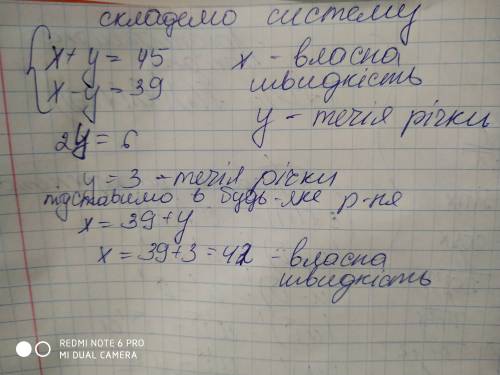 складемо систему
x + y = 45
x - y = 39
x - власна
швидкість
y - течія річки
2y = 6
y = 3 - течія річки
підставимо в будь-яке р-ня
x = 39 + y
x = 39 + 3 = 42 - власна
швидкість
REDMI NOTE 6 PRO
MI DUAL CAMERA